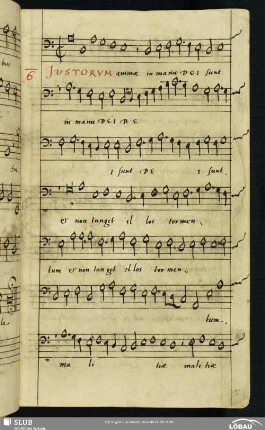 6 JUSTORVM animæ in manu DEI sunt
in manu DEI DE
i sunt DE i sunt.
et non tanget il los tormen
tum et non tanget illos tormen
tum.
ma li tiæ malitiæ
SLUB
LÖBAU